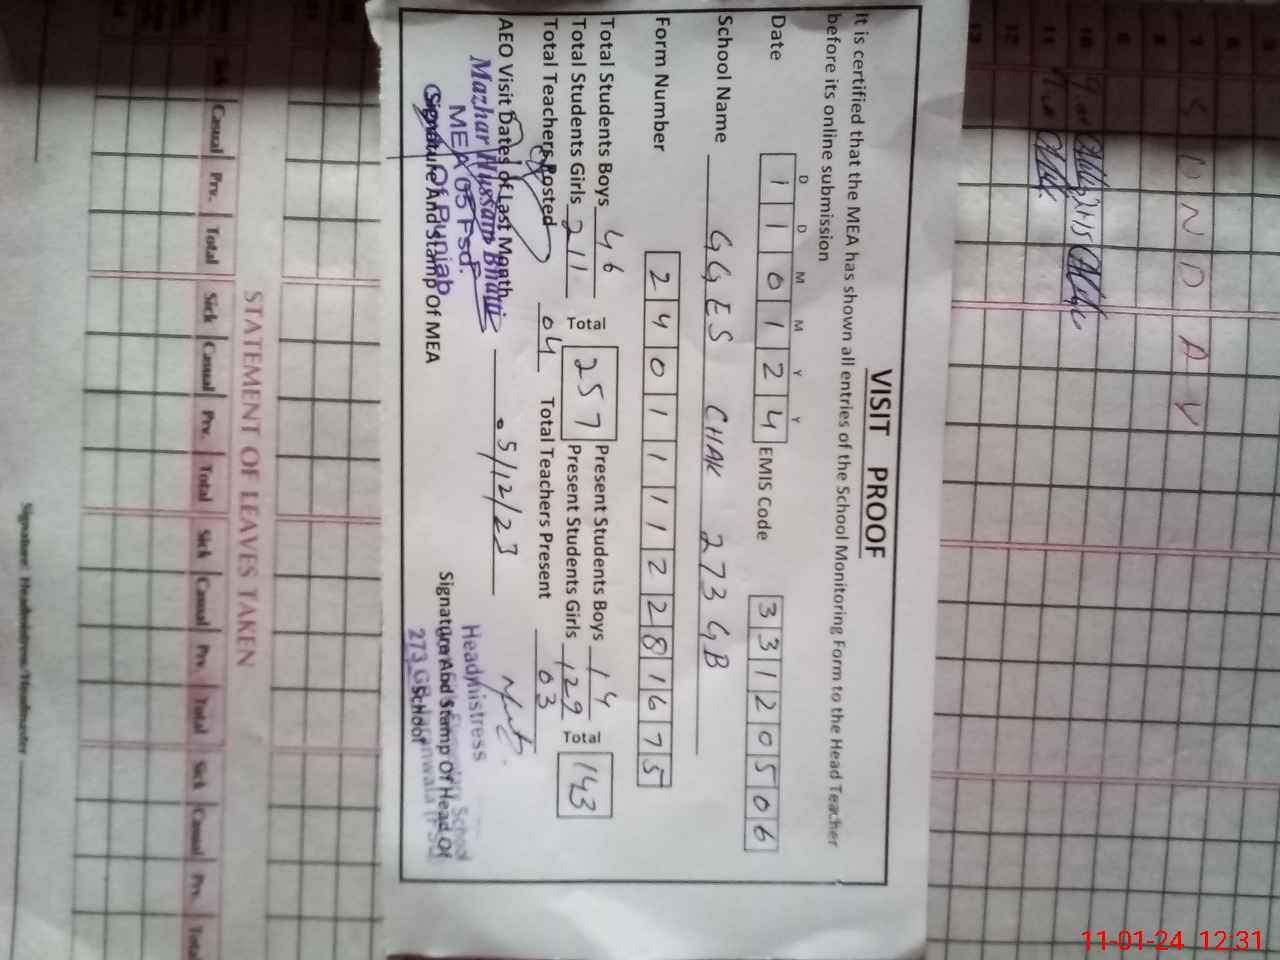 VISIT PROOF
It is certified that the MEA has shown all entries of the School Monitoring Form to the Head Teacher
before its online submission
D D M M Y Y
Date 1 1 0 1 2 4 EMIS Code 3 3 1 2 0 5 0 6
School Name GGES CHAK 273 GB
Form Number 2 4 0 1 1 1 1 2 2 8 1 6 7 5
Total Students Boys 46 Total 257 Present Students Boys 14 Total 143
Total Students Girls 211 Present Students Girls 129
Total Teachers Posted 04 Total Teachers Present 03
AEO Visit Dates of Last Month 5/12/23
Mazhar Hussain Bhatti
MEA 05 Fsd.
Of Punjab
(Signature And Stamp Of MEA
Headmistress
School
Signature And Stamp Of Head Of
School
273 GB
STATEMENT OF LEAVES TAKEN
Sick Casual Prv. Total Sick Casual Prv. Total Sick Casual Prv. Total Sick Casual Prv. Total
Signature Headmistress/Headmaster
6
7
8
9
10
11
12
13
S U N D A Y
11-01-24 12:31